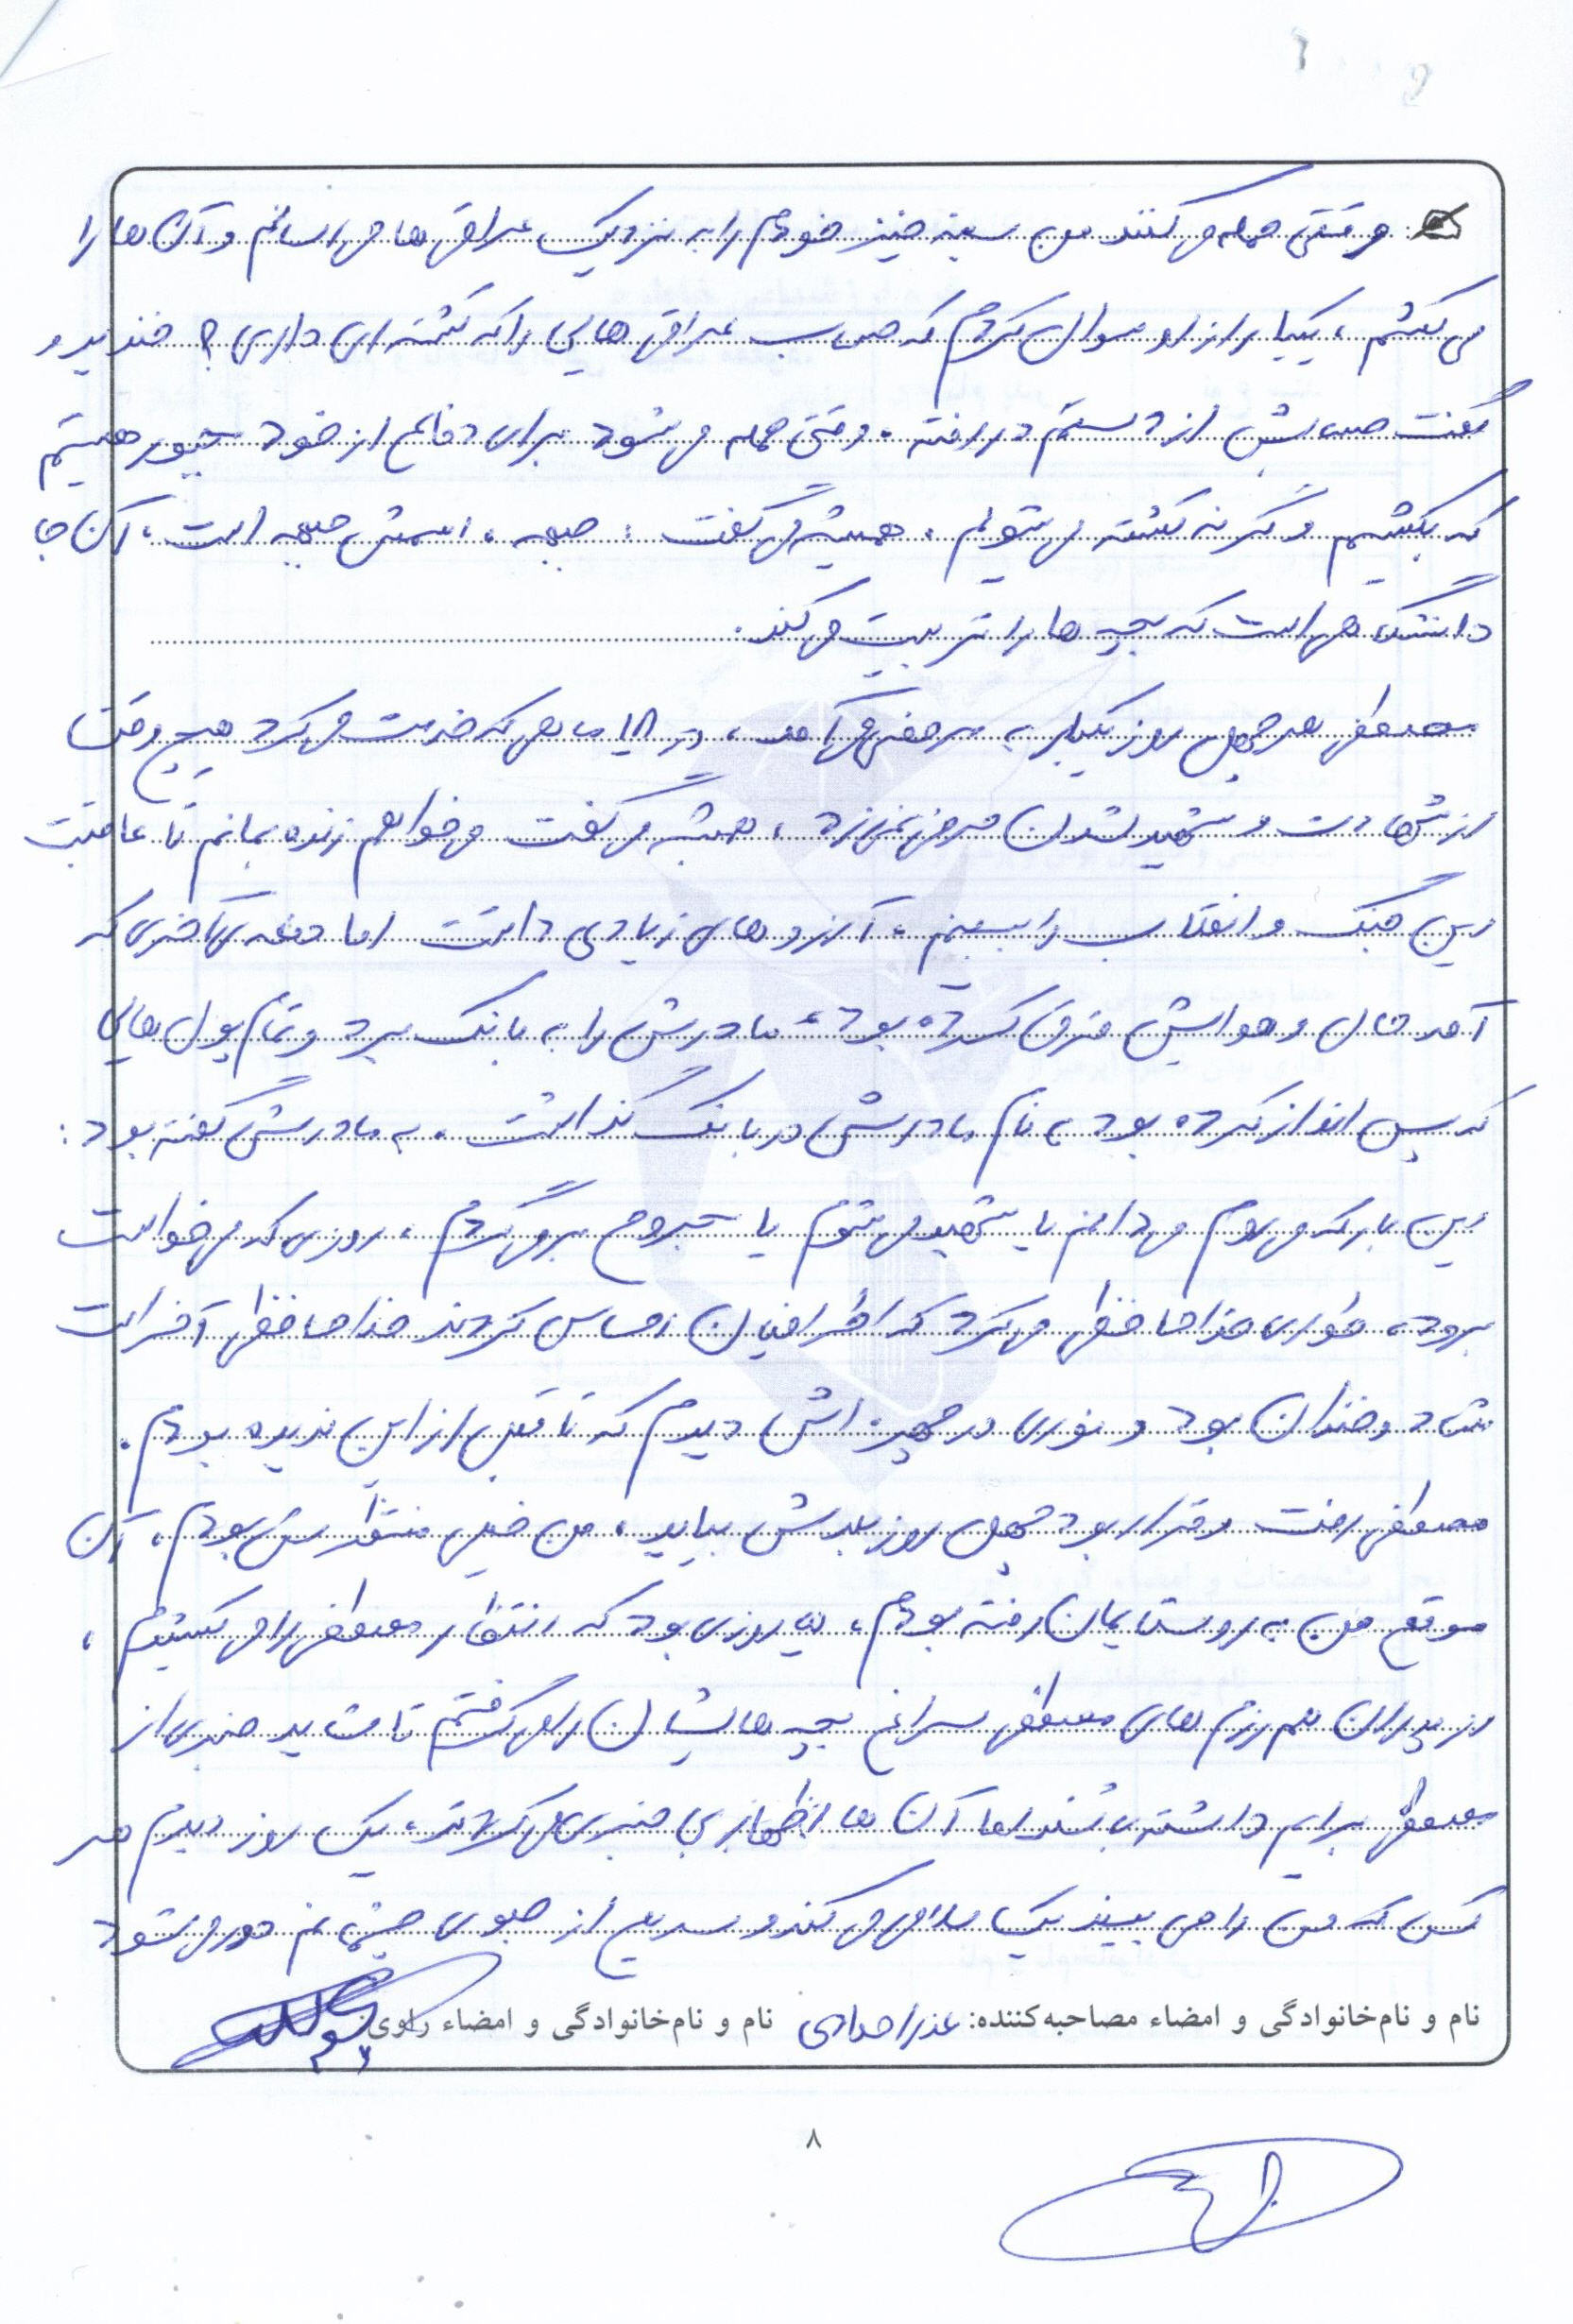 وقتی حمله می کنند من سینه خیز خودم را به نزدیک عراقی ها می رسانم و آن ها را
می کشم، یکبار از او سوال کردم که حساب عراقی هایی را که کشته ای داری؟ خندید و
گفت حسابش از دستم در رفته. وقتی حمله می شود برای دفاع از خود مجبور هستیم
که بکشیم وگرنه کشته می شویم. همیشه می گفت: جبهه، اسمش جبهه است، آن جا
دانشگاهی است که بچه ها را تربیت می کند.
مصطفی هر چهل روز یکبار به مرخصی می آمد، در ۱۸ ماهی که خدمت می کرد هیچ وقت
از شهادت و شهید شدن حرفی نمی زد، همیشه می گفت می خواهم زنده بمانم تا عاقبت
این جنگ و انقلاب را ببینم، آرزوهای زیادی داشت اما دفعه ی آخری که
آمد حال و هوایش فرق کرده بود، مادرش را به بانک برد و تمام پول هایی
که پس انداز کرده بود به نام مادرش در بانک گذاشت، به مادرش گفته بود:
این بار که می روم می دانم یا شهید می شوم یا مجروح برمی گردم، روزی که می خواست
برود، طوری خداحافظی می کرد که اطرافیان احساس کردند خداحافظی آخر است
شاد و خندان بود و نوری در چهره اش دیدم که تا قبل از این ندیده بودم.
مصطفی رفت و قرار بود چهل روز بعدش بیاید، من خیلی منتظرش بودم، آن
موقع من به روستایمان رفته بودم، روزی بود که انتظار مصطفی را می کشیدم،
از پدران هم رزم های مصطفی سراغ بچه هایشان را می گرفتم تا شاید خبری از
مصطفی برایم داشته باشند اما آن ها اظهار بی خبری می کردند، یک روز دیدم هر
کس که من را می بیند یک سلامی می کند و سریع از جلوی چشمانم دور می شود
نام و نام‌خانوادگی و امضاء مصاحبه‌کننده: عذرا مرادی نام و نام‌خانوادگی و امضاء راوی:
۸